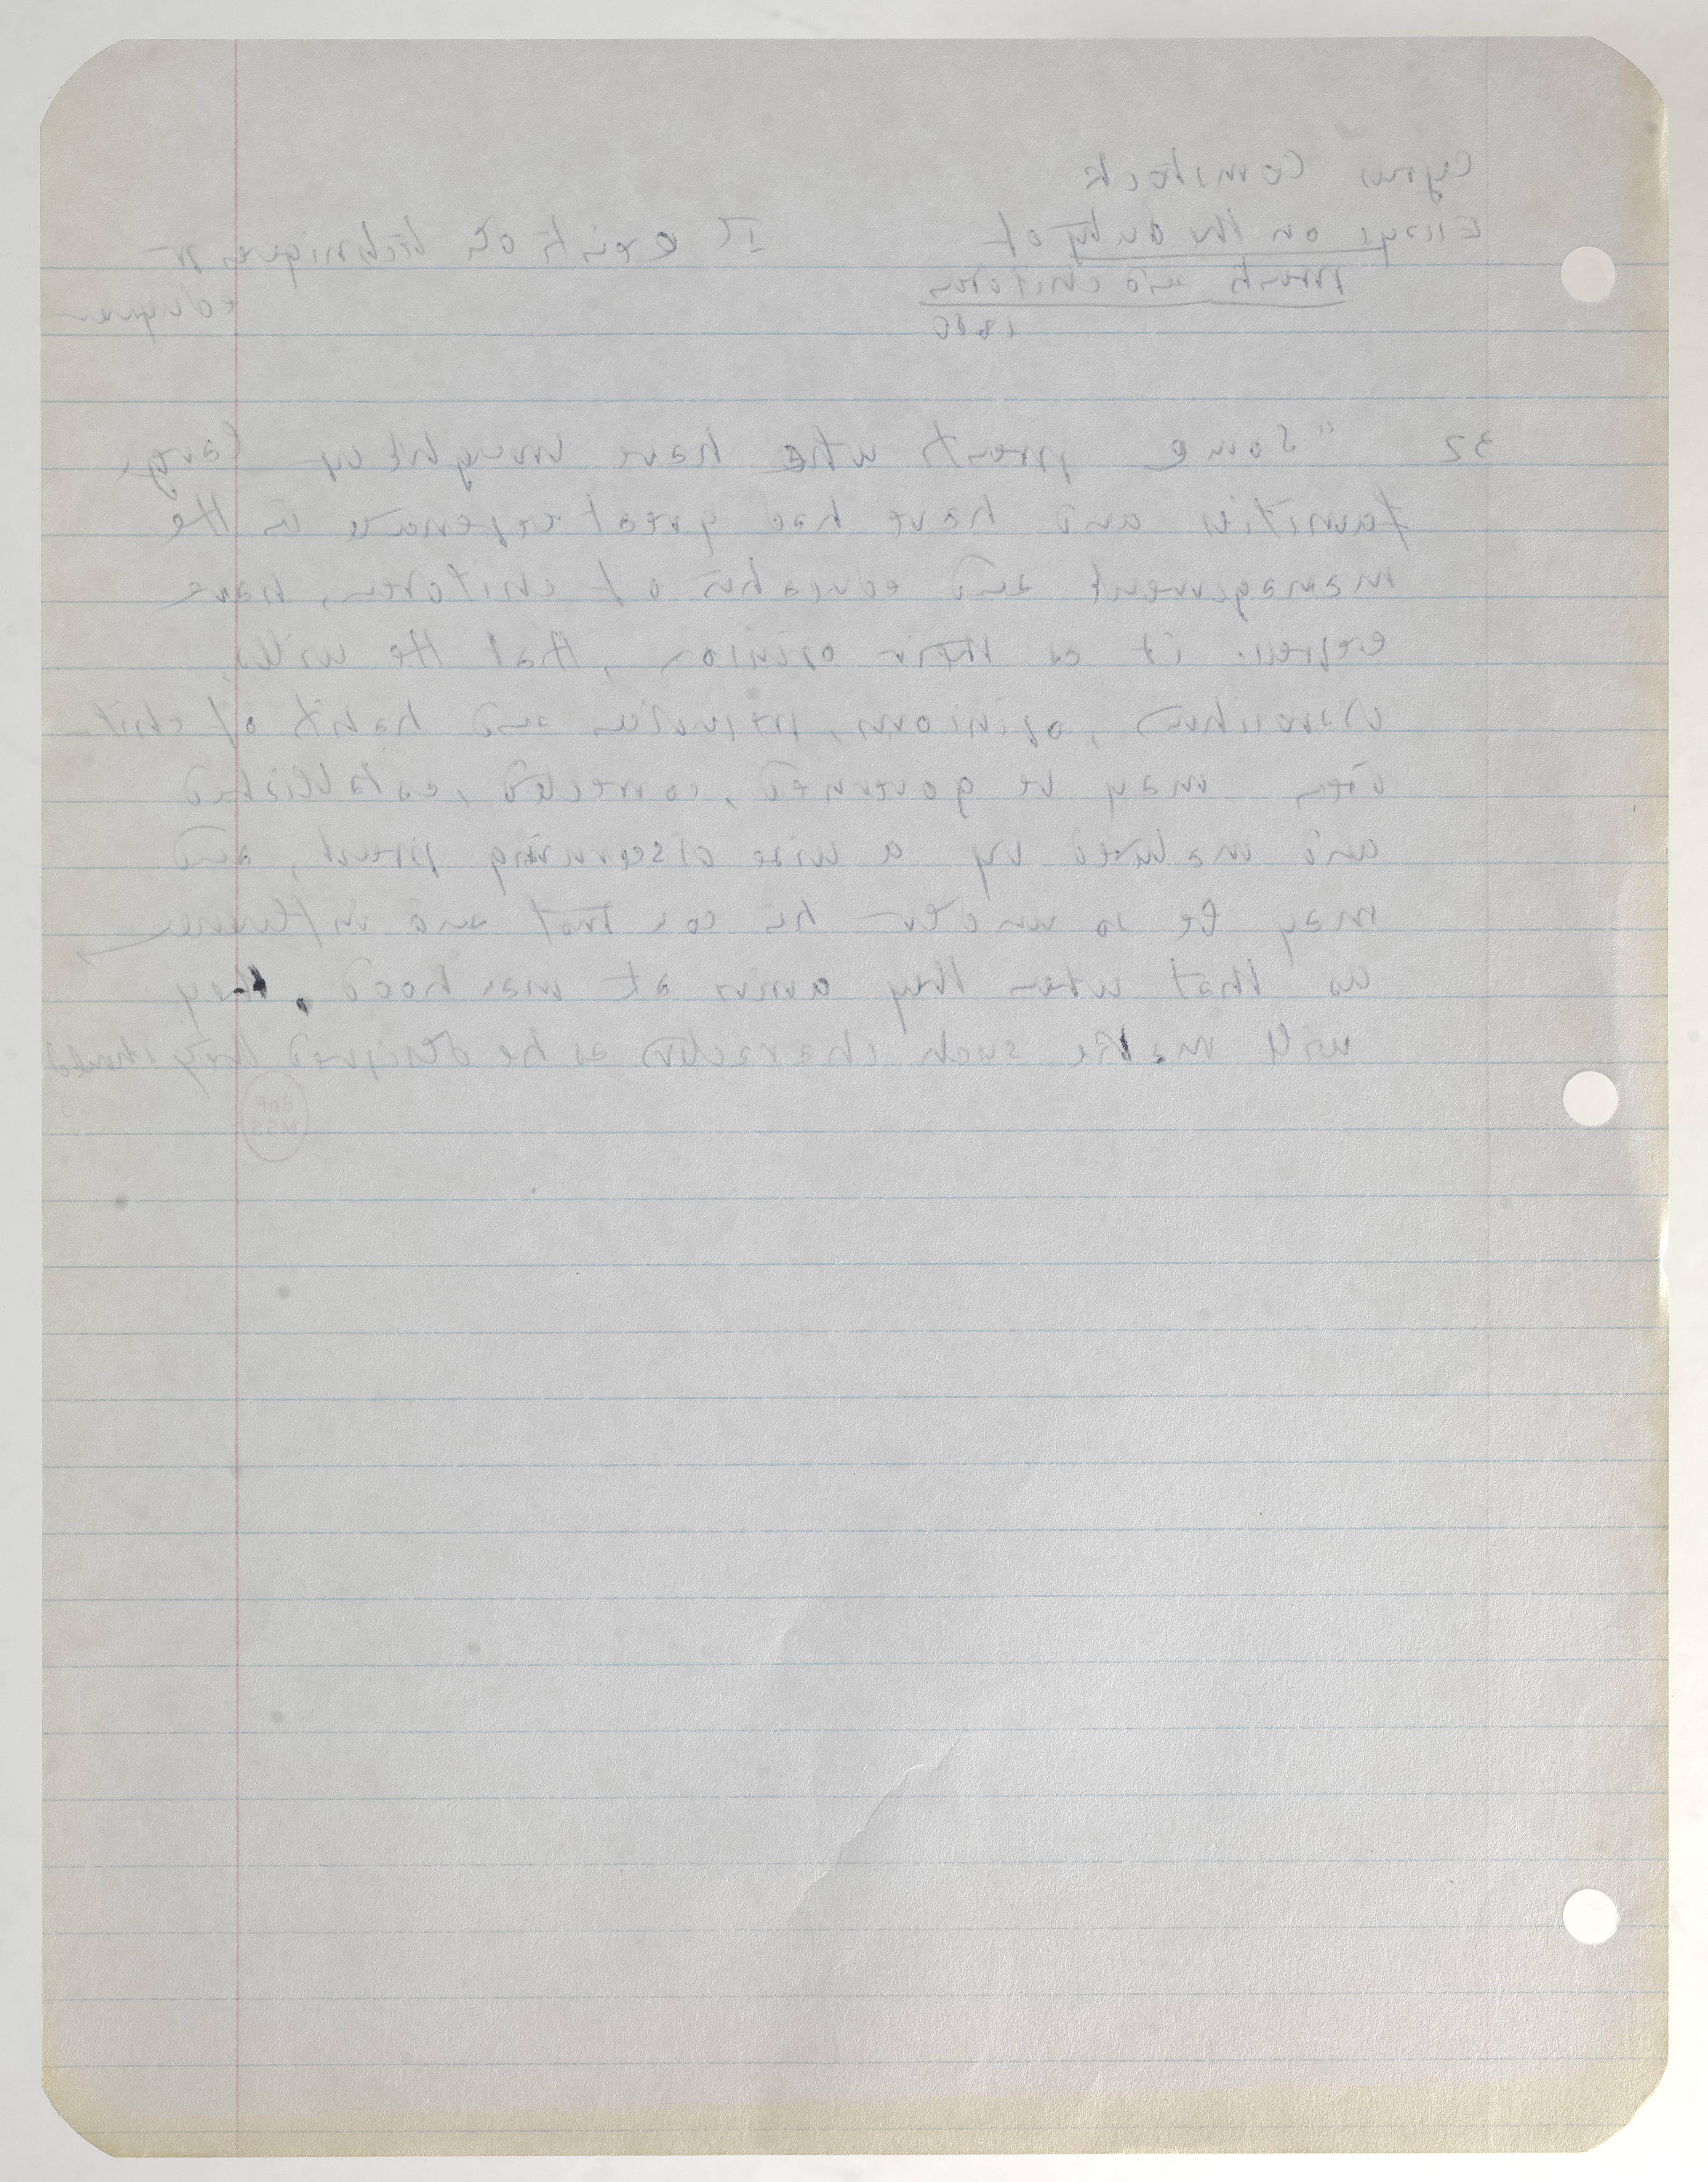 Cyrus Comstock
Essays on the duty of
parents and children
1810
II existe des techniques pr
eduquer
32 "Some parents who have brought up large
families and have had great experience in the
management and education of children, have
express. it as their opinion, that the wills,
dispositions, opinions, prejudices and habits of chil-
dren may be governed, corrected, established
and matured by a wise discerning parent, and
may be so under his control and influence
as that when they arrive at manhood, they
will make such characters as he designed they should
BnF
MSS